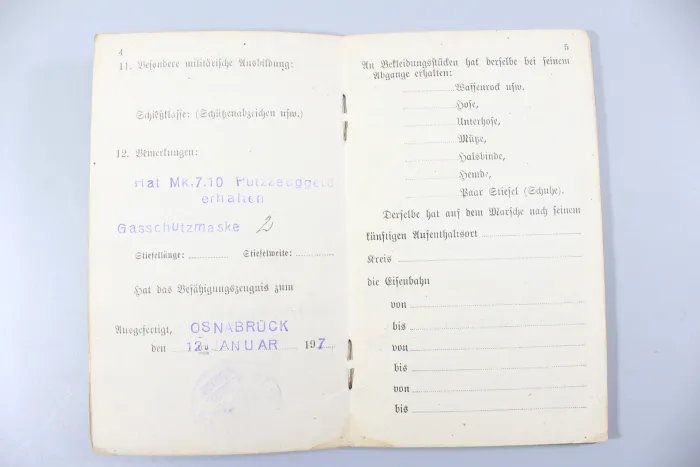 4
11. Besondere militärische Ausbildung:
Schießklasse: (Schützenabzeichen usw.)
12. Bemerkungen:
Hat Mk.7.10 Putzzeuggeld
erhalten
Gasschutzmaske 2
Stiefellänge: Stiefelweite:
Hat das Befähigungszeugnis zum
Ausgefertigt, OSNABRÜCK
den 12. JANUAR 1917
5
An Bekleidungsstücken hat derselbe bei seinem
Abgange erhalten:
Waffenrock usw.
Hose,
Unterhose,
Mütze,
Halsbinde,
Hemde,
Paar Stiefel (Schuhe).
Derselbe hat auf dem Marsche nach seinem
künftigen Aufenthaltsort
Kreis
die Eisenbahn
von
bis
von
bis
von
bis